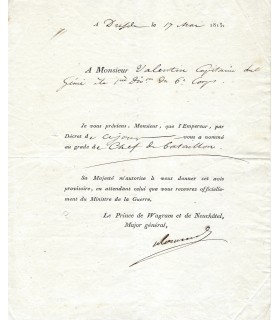 A Dresde le 17 Mai 1813.
A Monsieur Valentin Capitaine du
Génie 1ere Divon du 6e Corps.
Je vous préviens, Monsieur, que l'Empereur, par
Décret de ce jour vous a nommé
au grade de Chef de bataillon.
Sa Majesté m'autorise à vous donner cet avis
provisoire, en attendant celui que vous recevrez officiellement
du Ministre de la Guerre.
Le Prince de Wagram et de Neuchâtel,
Major général,